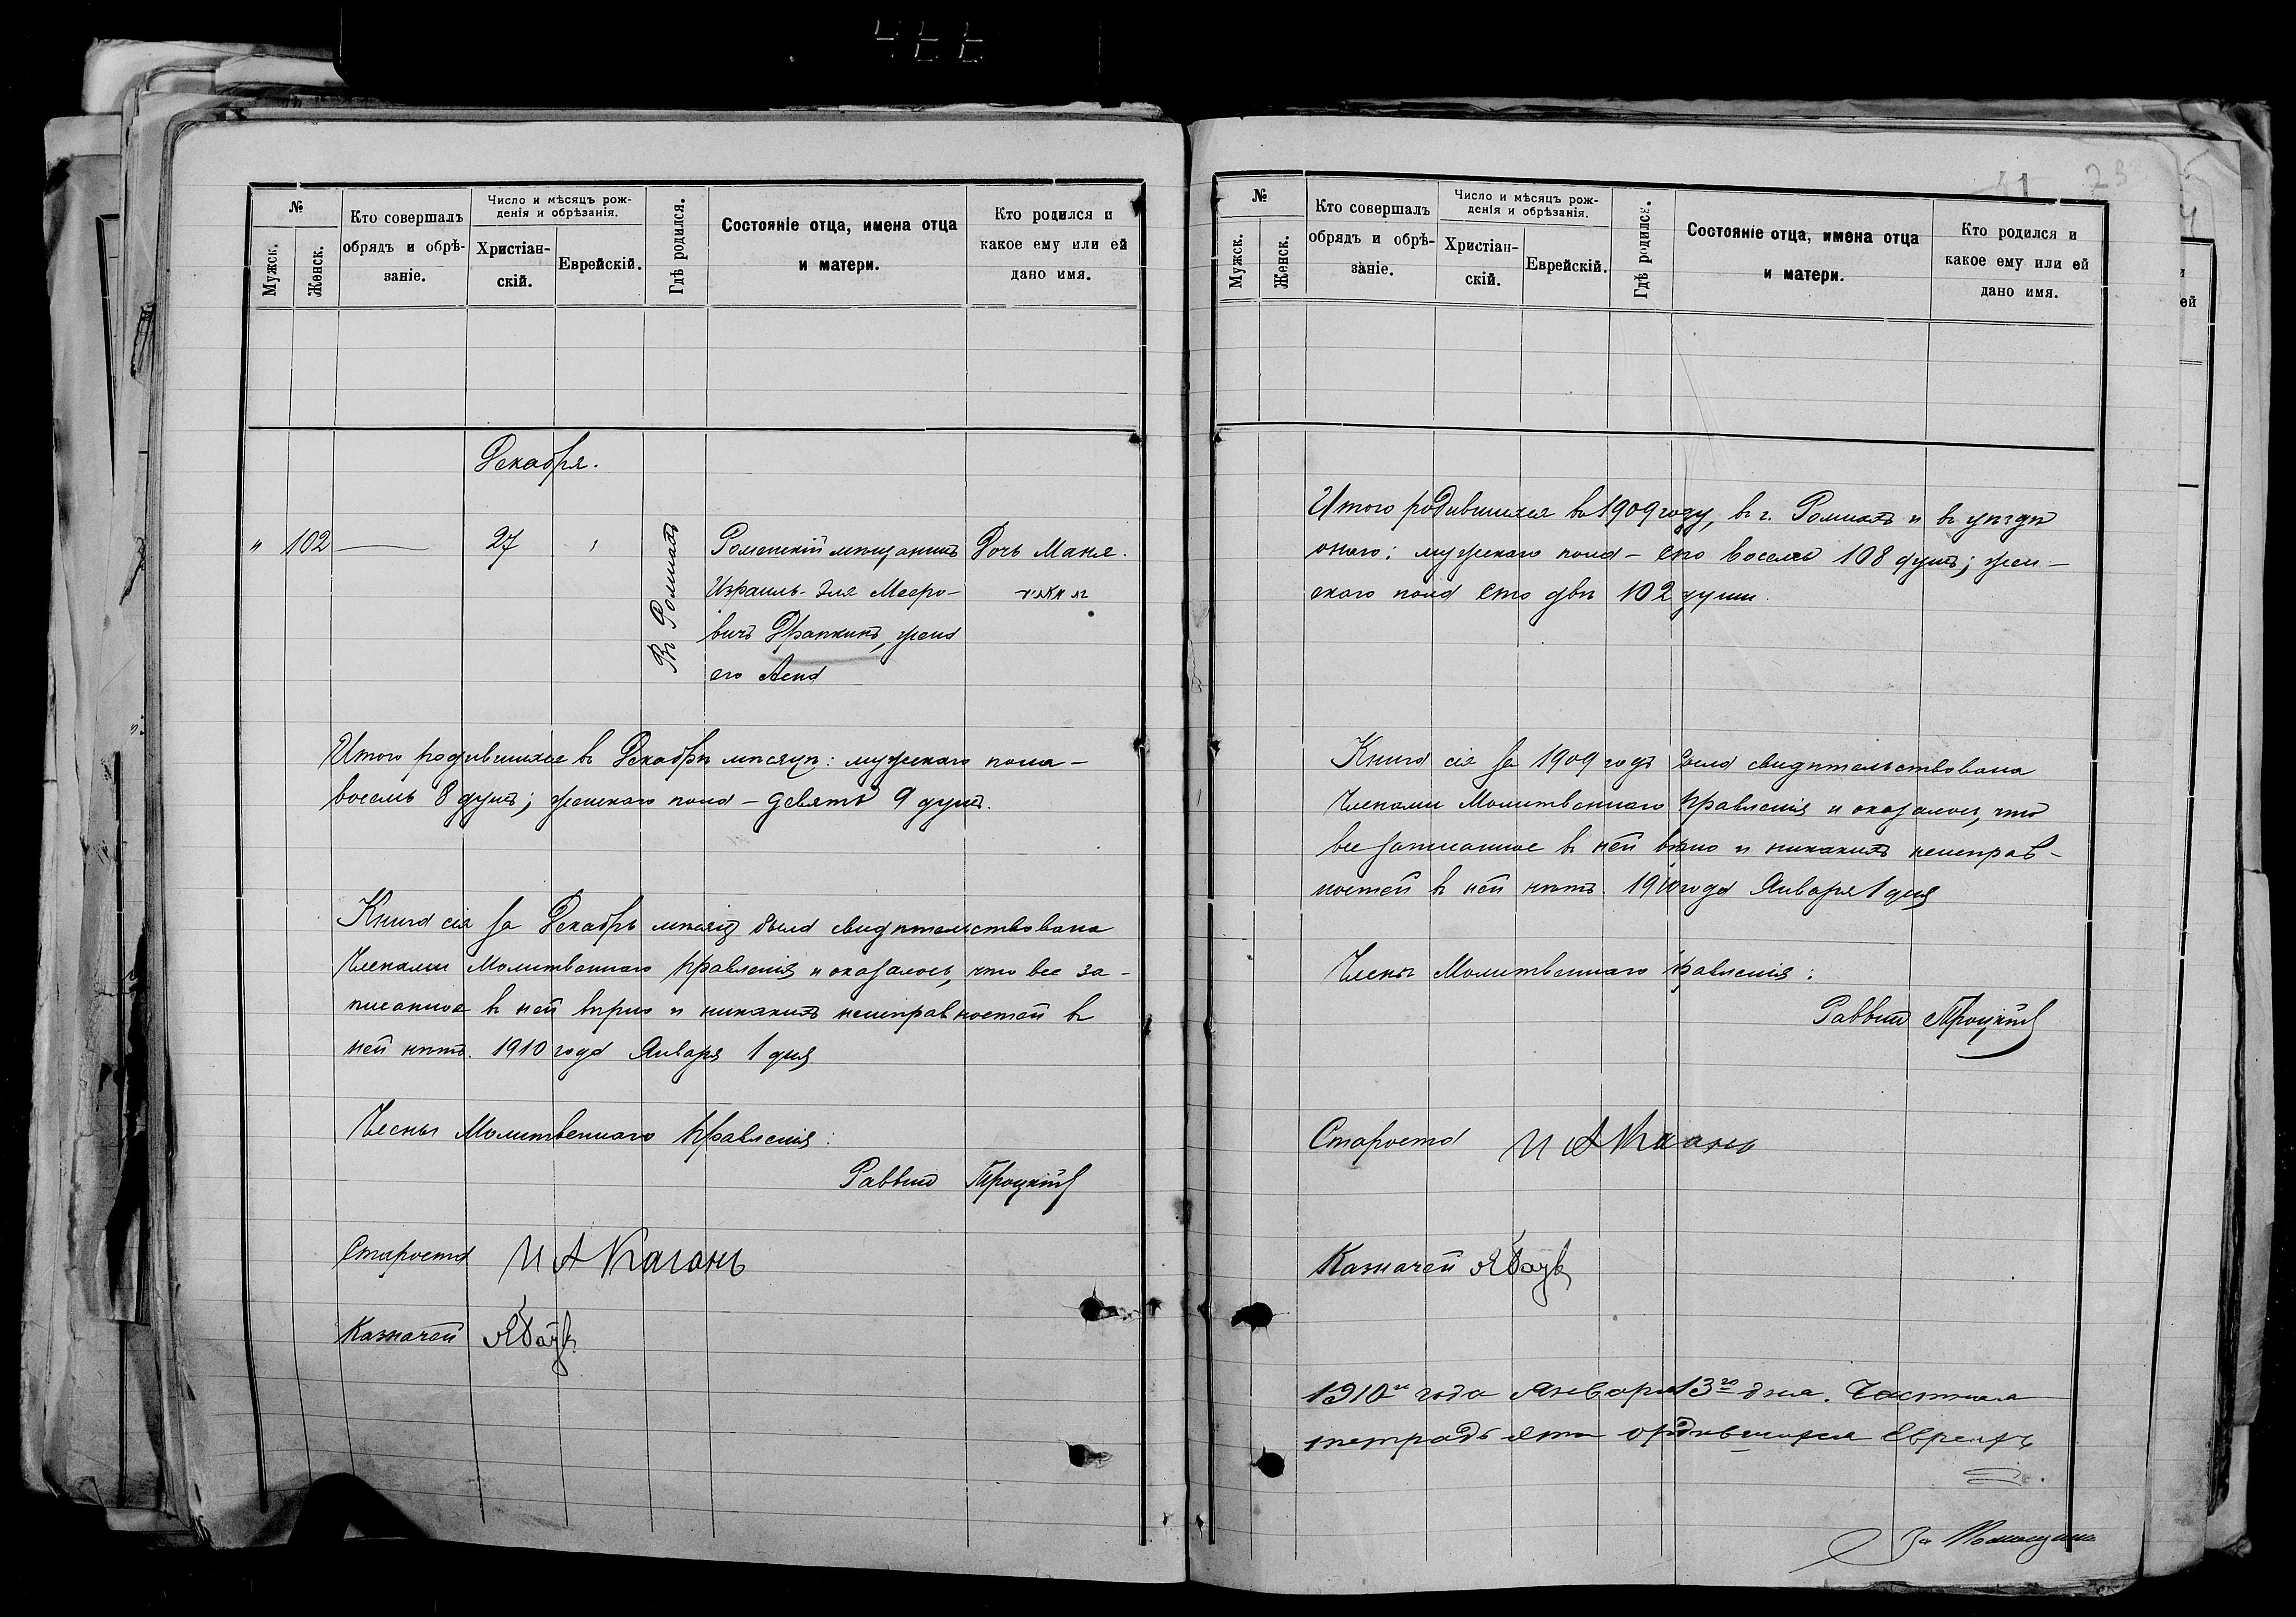 №
Мужск.
Женск.
Кто совершалъ
обрядъ и обрѣ-
заніе.
Число и мѣсяцъ рож-
денія и обрѣзанія.
Христіан-
скій.
Еврейскій.
Гдѣ родился.
Состояніе отца, имена отца
и матери.
Кто родился и
какое ему или ей
дано имя.
Декабря.
" 102 27
Въ Ромнахъ
Роменскій мѣщанинъ
Израиль- Мееро-
вичъ Драпкинъ, жена
его
Дочь Маня.
Итого родившихся въ Декабрѣ мѣсяцѣ: мужскаго пола –
восемь 8 душъ; женскаго пола – девять 9 душъ.
Книга сія за Декабрь мѣсяцъ была свидѣтельствована
Членами Молитвеннаго Правленія и оказалось, что все за-
писанное въ ней вѣрно и никакихъ неисправностей въ
ней нѣтъ. 1910 года Января 1 дня
Члены Молитвеннаго Правленія:
Раввинъ Троцкій
Староста И А Каганъ
Казначей
41 23
№
Мужск.
Женск.
Кто совершалъ
обрядъ и обрѣ-
заніе.
Число и мѣсяцъ рож-
денія и обрѣзанія.
Христіан-
скій.
Еврейскій.
Гдѣ родился.
Состояніе отца, имена отца
и матери.
Кто родился и
какое ему или ей
дано имя.
ей
Итого родившихся въ 1909 году, въ г. Ромнахъ и въ уѣздѣ
онаго: мужскаго пола – сто восемь 108 душъ; жен-
скаго пола сто двѣ 102 души.
Книга сія за 1909 годъ была свидѣтельствована
Членами Молитвеннаго Правленія и оказалось, что
все записанное въ ней вѣрно и никакихъ неисправ-
ностей въ ней нѣтъ. 1910 года Января 1 дня
Члены Молитвеннаго Правленія:
Раввинъ Троцкій
Староста И А Каганъ
Казначей
1910 года Января 13го дня.
тетрадь родившихся Евреевъ
За